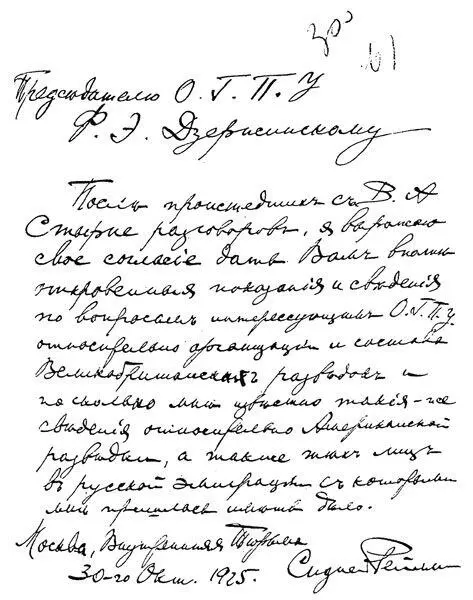 30
61
Председателю О. Г. П. У
Ф. Э. Дзержинскому
Послѣ происшедшихъ съ В. А
Стырне разговоровъ, я выражаю
свое согласіе дать Вамъ вполнѣ
откровенныя показанія и свѣдѣнія
по вопросамъ интересующимъ О.Г.П.У
относительно организаціи и состава
Великобританскихъ разведокъ и
по сколько мнѣ извѣстно такія-же
свѣдѣнія относительно Американской
разведки, а также тѣхъ лицъ
въ русской эмиграціи съ которыми
мнѣ пришлось имѣть дѣло.
Москва, Внутренняя Тюрьма
30-го Окт. 1925. Сидней Рейлли